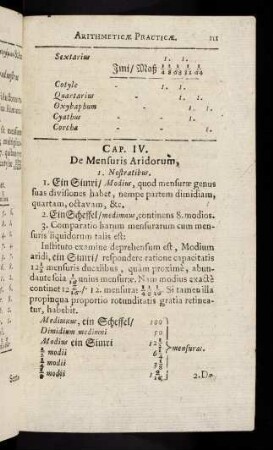 ARITHMETICÆ PRACTICÆ.
Sextarius 1. 1.
Imi/ Maß
Cotyle - 1.
Quartarius - 1. 1.
Oxybaphum - - 1. 1.
Cyathus - - 1.
Cochea - - 1.
CAP. IV.
De Mensuris Aridorum,
1. Nostratibus.
1. Ein Simri/ Modius, quod mensuræ genus
suas divisiones habet, nempe partem dimidiam,
quartam, octavam, &c.
2. Ein Scheffel/ medimnus, continens 8. modios.
3. Comparatio harum mensurarum cum men-
suris liquidorum talis est:
Instituto examine deprehensum est, Modium
aridi, ein Simri/ respondere ratione capacitatis
mensuris ducalibus, quàm proximè, abun-
dante solâ unius mensuræ. Nam modius exactè
continet 12. mensuras Si tamen illa
propinqua proportio rotunditatis gratia retinea-
tur, habebit.
Medimnus, ein Scheffel/ 100
Dimidium medimni 50
Modius ein Simri
modii mensuras.
modii
modii
2. De